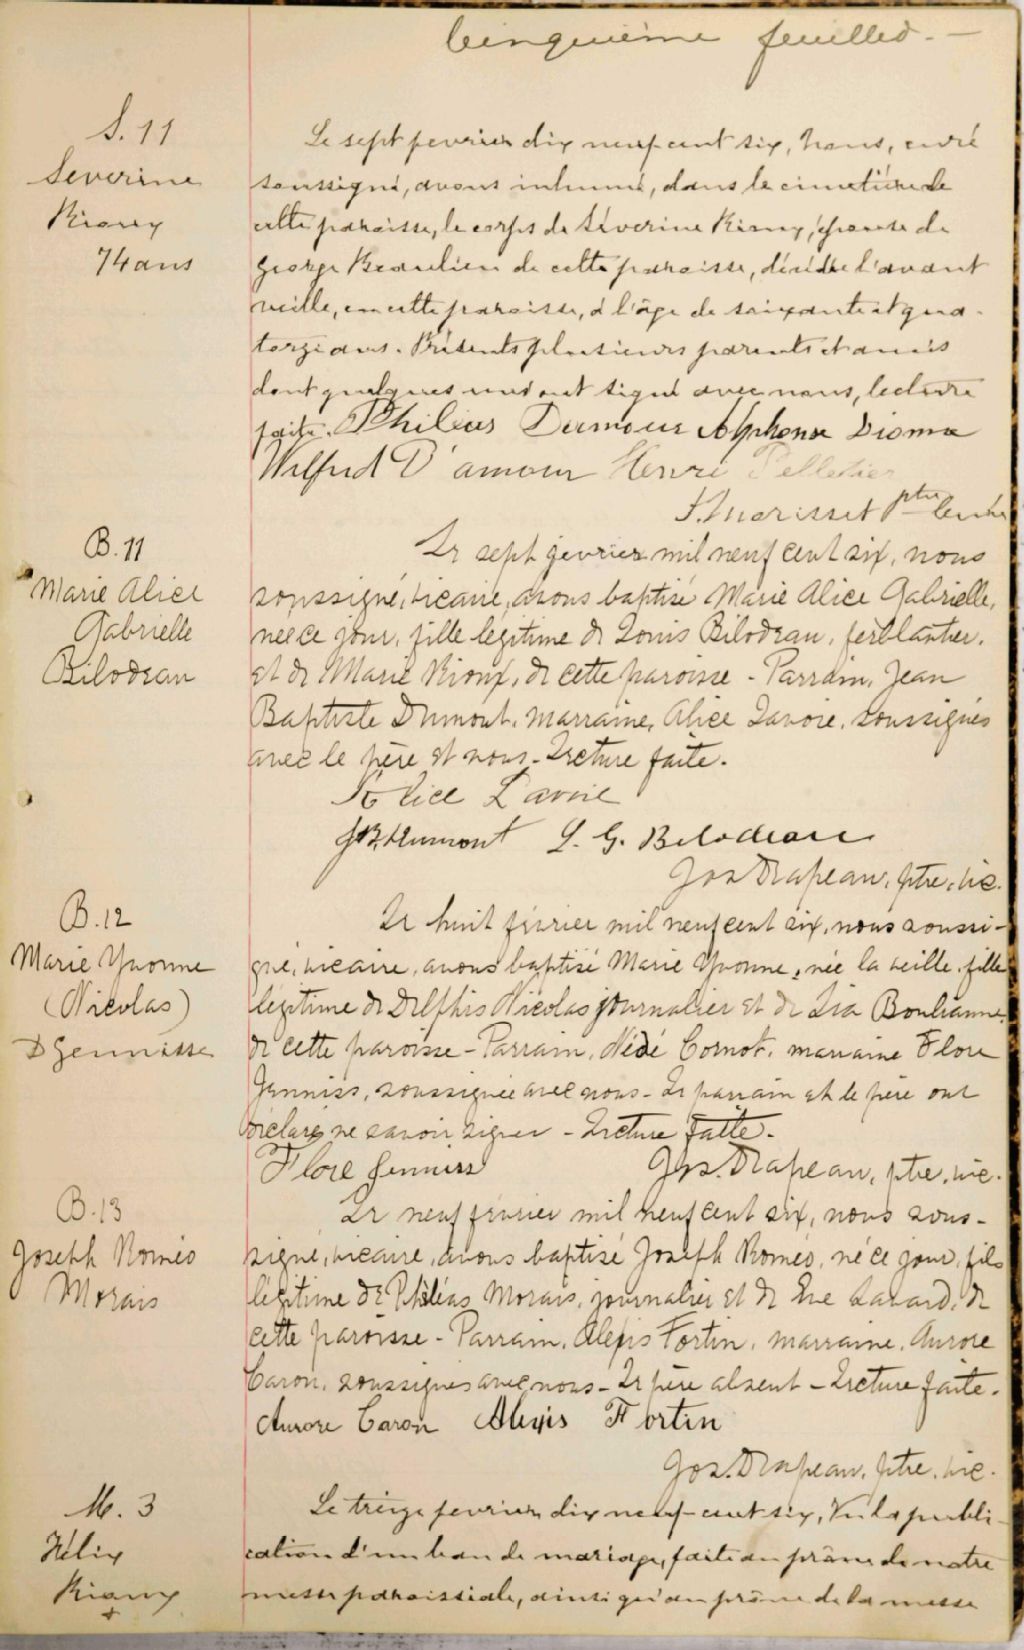 Cinquième feuillet.—
S. 11
Severine
Rioux
74 ans
Le sept fevrier dix neuf cent six, Nous, curé
soussigné, avons inhumé, dans le cimetière de
cette paroisse, le corps de Séverine Rioux, épouse de
George Beaulieu de cette paroisse, décédée l'avant
veille, en cette paroisse, à l'âge de soixante et qua-
torze ans. Présents plusieurs parents et amis
dont quelques uns ont signé avec nous, lecture
faite. Philias Damour Alphonse Dionne
Wilfrid D'amour Henri Pelletier
J. Morisset Ptre Curé
B. 11
Marie Alice
Gabrielle
Bilodeau
Le sept fevrier mil neuf cent six, nous
soussigné, vicaire, avons baptisé Marie Alice Gabrielle,
née ce jour, fille légitime de Louis Bilodeau, ferblantier,
et de Marie Rioux, de cette paroisse - Parrain, Jean
Baptiste Dumont, marraine, Alice Lavoie, soussignés
avec le père et nous - Lecture faite.
Alice Lavoie
J.B. Dumont L. G. Bilodeau
Jos Drapeau, ptre, vic.
B. 12
Marie Yvonne
(Nicolas)
D Gennisse
Le huit février mil neuf cent six, nous soussi-
gné, vicaire, avons baptisé Marie Yvonne, née la veille, fille
légitime de Delphis Nicolas journalier et de Lia Boulianne,
de cette paroisse - Parrain, Dédé Cornot, marraine Flore
Jenniss, soussignée avec nous - Le parrain et le père ont
déclaré ne savoir signer - Lecture faite.
Flore Jenniss Jos. Drapeau, ptre, vic.
B. 13
Joseph Roméo
Morais
Le neuf février mil neuf cent six, nous sous-
signé, vicaire, avons baptisé Joseph Roméo, né ce jour, fils
légitime de Philéas Morais, journalier et de Eve Savard, de
cette paroisse - Parrain, Alexis Fortin, marraine, Aurore
Caron, soussignés avec nous - Le père absent - Lecture faite.
Aurore Caron Alexis Fortin
Jos. Drapeau, ptre, vic.
M. 3
Félix
Rioux
+
Le treize fevrier dix neuf-cent six, Vu la publi-
cation d'un ban de mariage, faite au prône de notre
messe paroissiale, ainsi qu'au prône de la messe